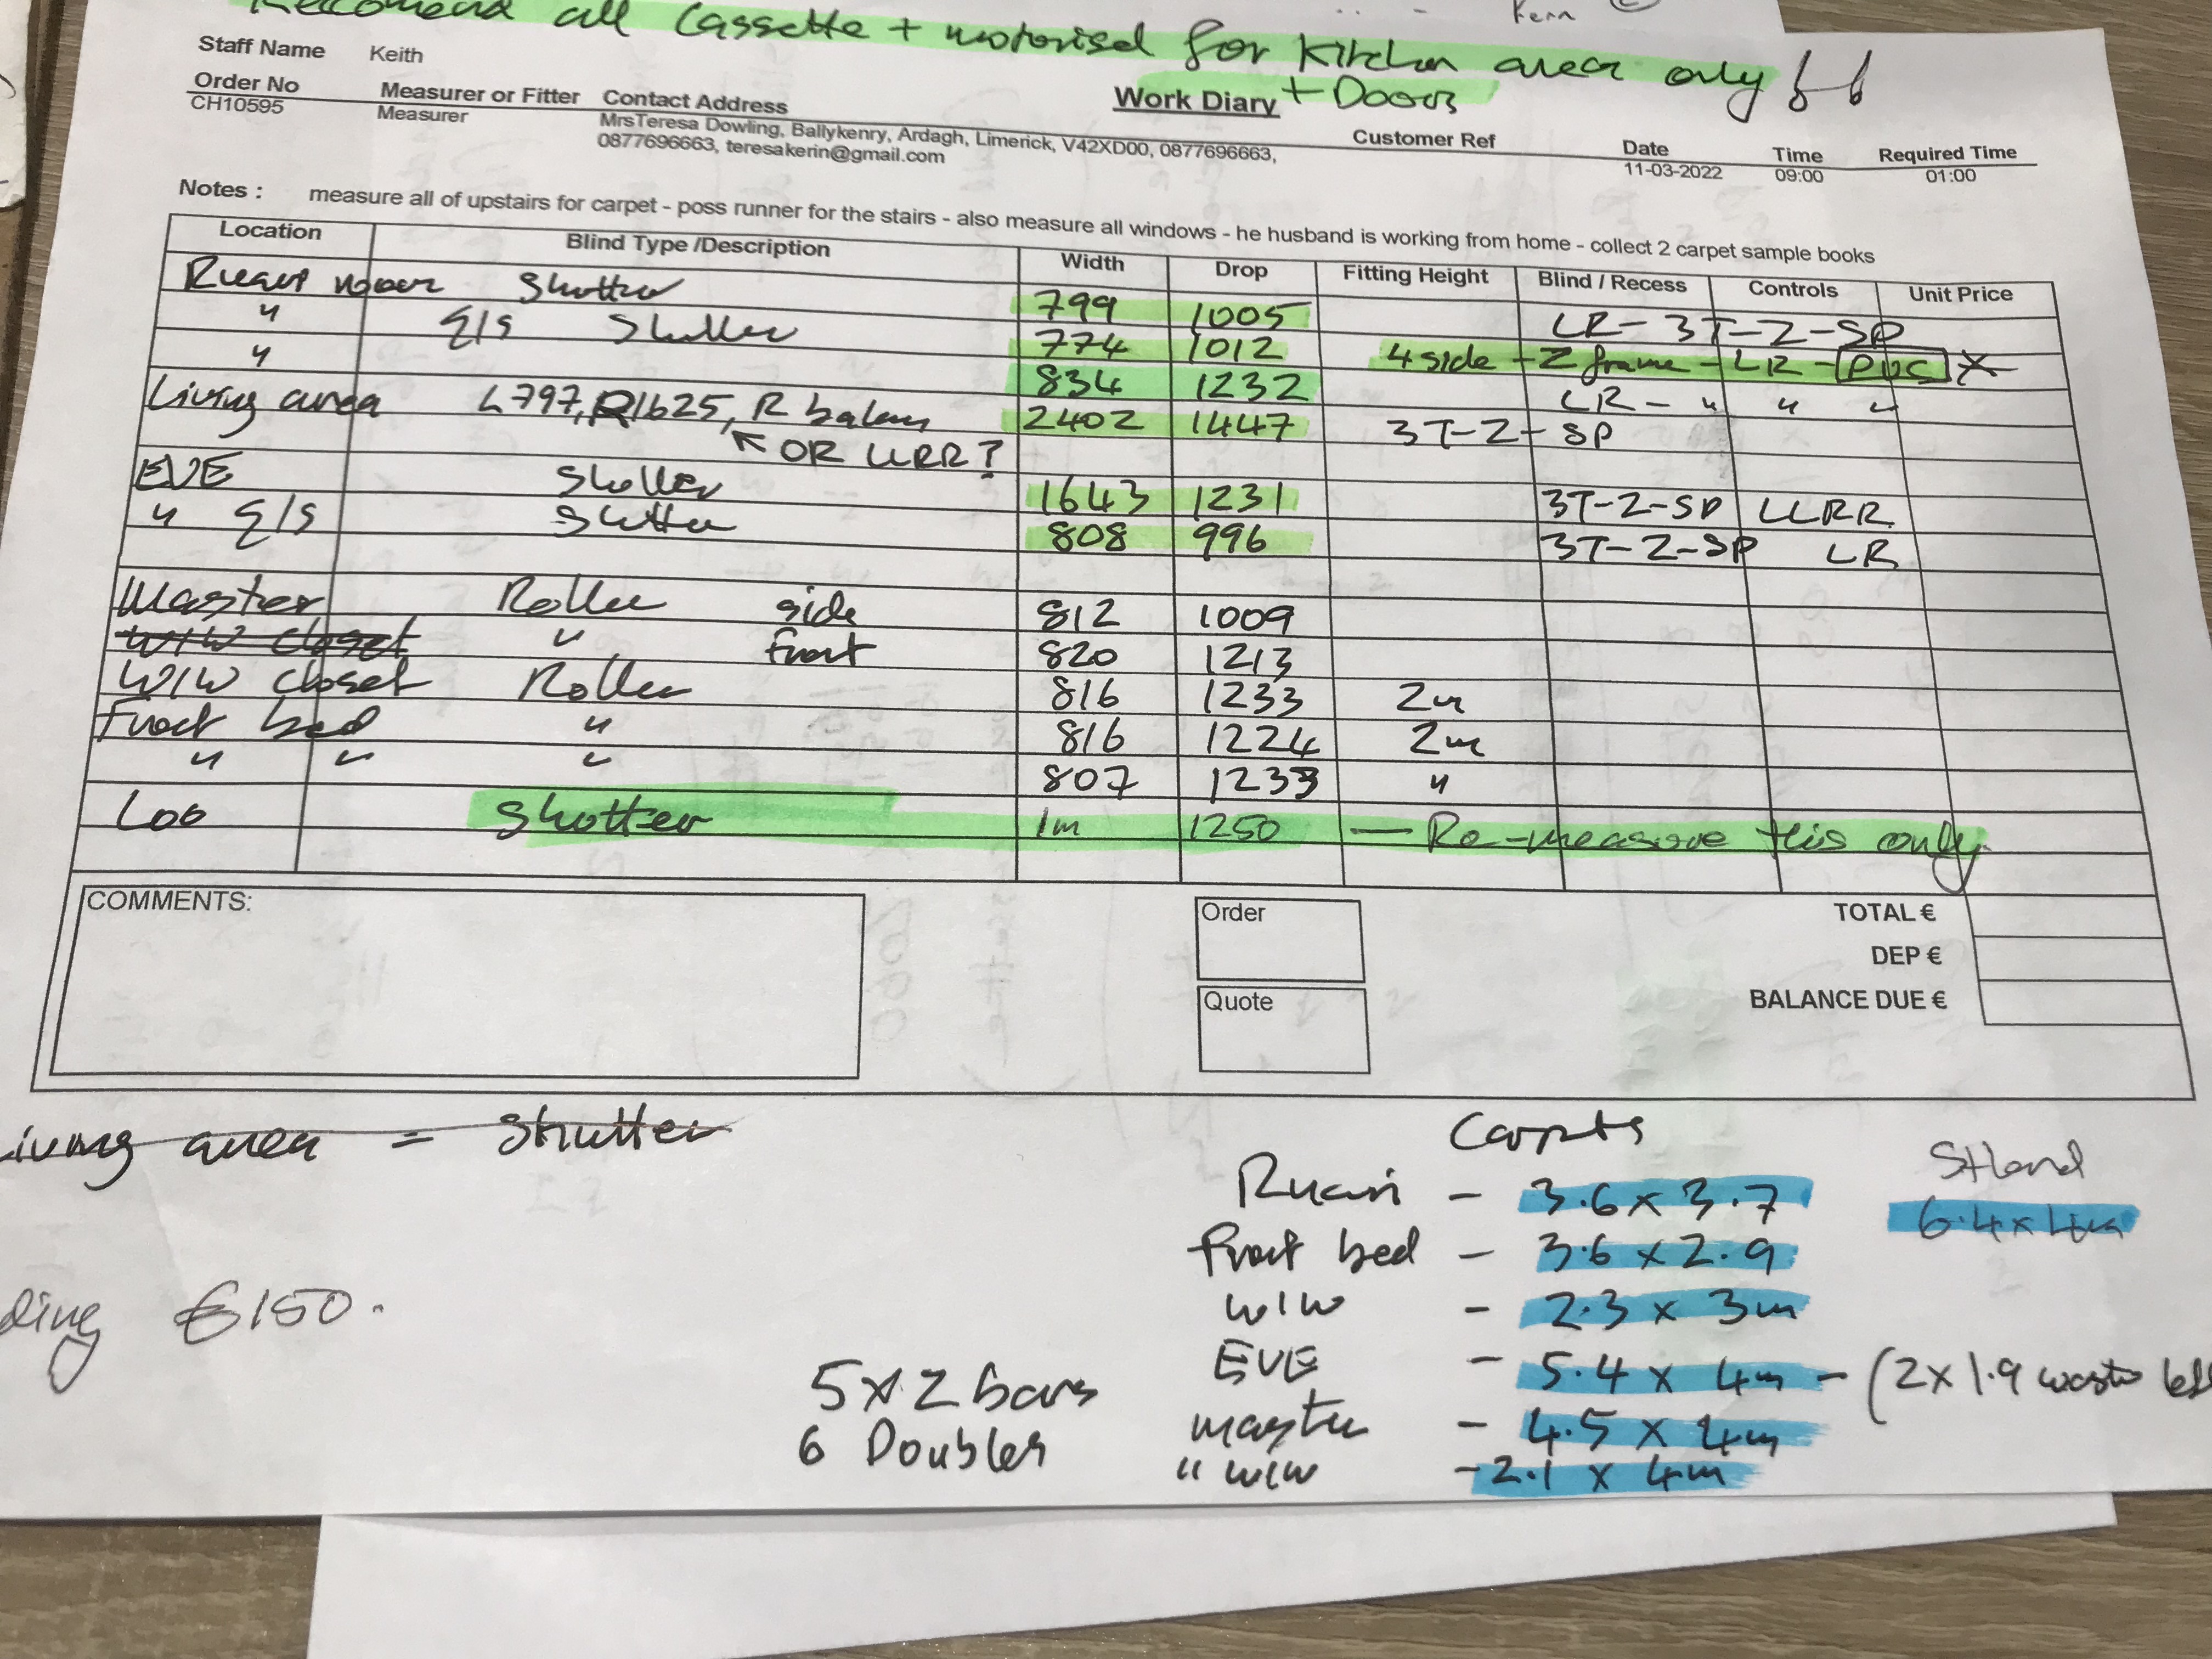 Recomend all Cassette + motorised for Kitchen area only
+ Doors
Kern
Staff Name Keith
Work Diary
Order No Measurer or Fitter Contact Address Customer Ref Date Time Required Time
CH10595 Measurer MrsTeresa Dowling, Ballykenry, Ardagh, Limerick, V42XD00, 0877696663, 11-03-2022 09:00 01:00
0877696663, teresakerin@gmail.com
Notes : measure all of upstairs for carpet - poss runner for the stairs - also measure all windows - he husband is working from home - collect 2 carpet sample books
Location Blind Type /Description Width Drop Fitting Height Blind / Recess Controls Unit Price
Shutter 799 1005 LR-3T-Z-SP
" E/S Shutter 774 1012 4 side - Z frame - LR - PVC
" 834 1232 LR - " " "
Living area L797, R1625, R 2402 1447 3T-Z-SP
OR LLRR?
EVE Shutter 1643 1231 3T-Z-SP LLRR
" E/S Shutter 808 996 3T-Z-SP LR
Master Roller side 812 1009
W/W closet " front 820 1213
W/W closet Roller 816 1233 2m
Front bed " 816 1224 2m
" " " 807 1233 "
Loo Shutter 1m 1250 — Re-measure this only
COMMENTS:
Order
Quote
TOTAL €
DEP €
BALANCE DUE €
Living area = Shutter
Carpts
Ruairi - 3.6 x 3.7
Front bed - 3.6 x 2.9
W/W - 2.3 x 3m
EVE - 5.4 x 4m - (2 x 1.9 waste
master - 4.5 x 4m
" W/W - 2.1 x 4m
6.4 x 4m
€150.
5 x Z bars
6 Doubles